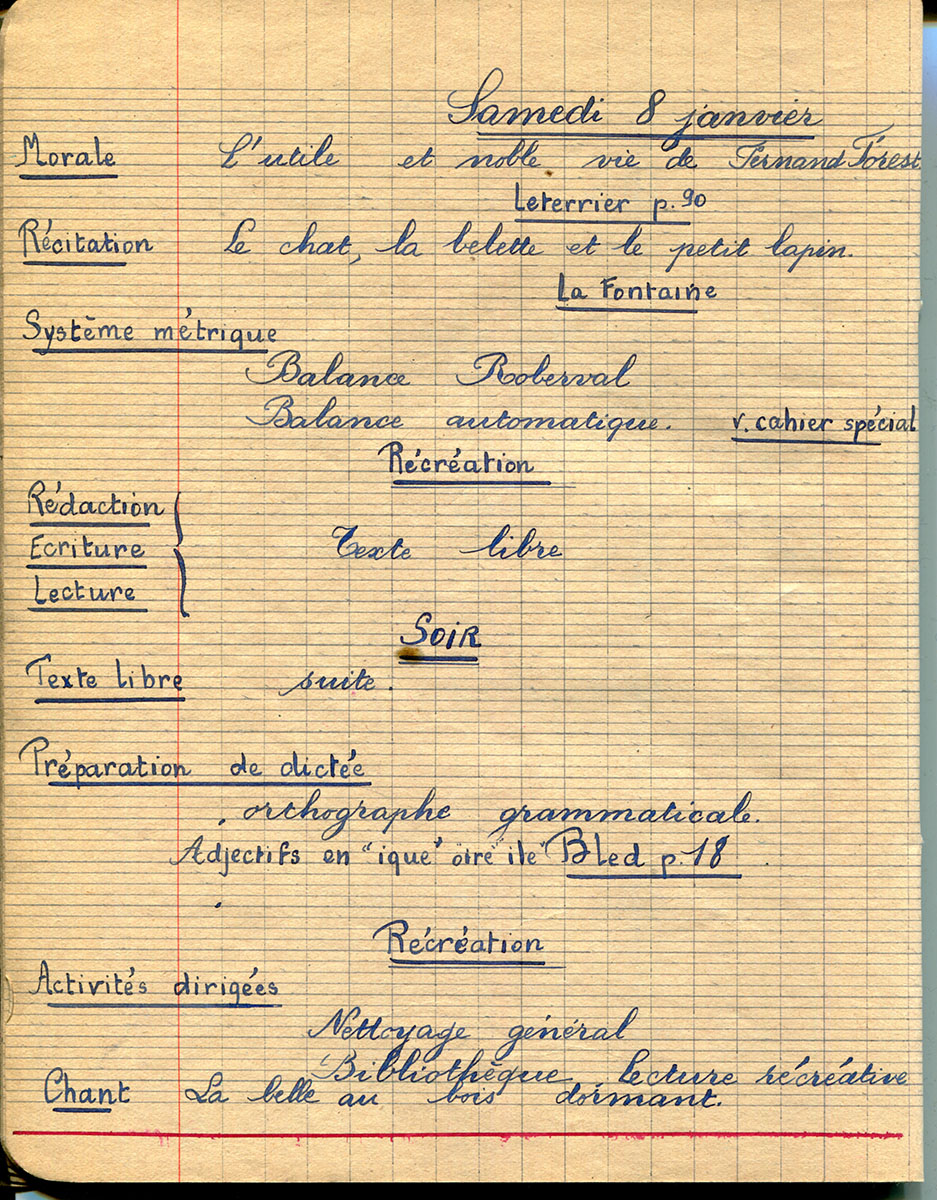 Samedi 8 janvier
Morale L'utile et noble vie de Fernand Forest
Leterrier p. 90
Récitation Le chat, la belette et le petit lapin.
La Fontaine
Système métrique
Balance Roberval
Balance automatique. v. cahier spécial
Récréation
Rédaction
Ecriture Texte libre
Lecture
SOIR
Texte libre suite.
Préparation de dictée
orthographe grammaticale.
Adjectifs en "ique" oire" ile" Bled p. 18
Récréation
Activités dirigées
Nettoyage général
Bibliothèque. Lecture récréative
Chant La belle au bois dormant.